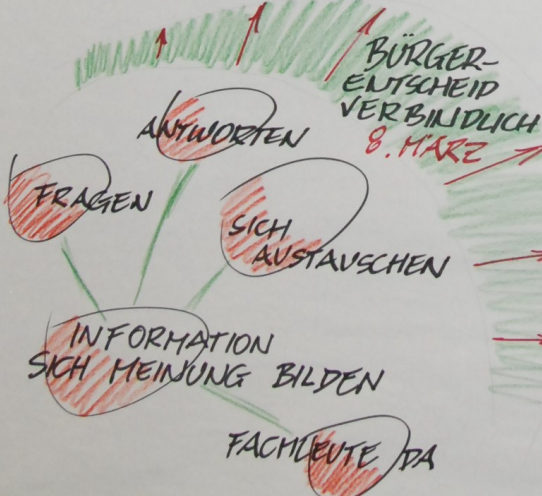 BÜRGER-
ENTSCHEID
VERBINDLICH
8. MÄRZ
ANTWORTEN
FRAGEN
SICH
AUSTAUSCHEN
INFORMATION
SICH MEINUNG BILDEN
FACHLEUTE DA